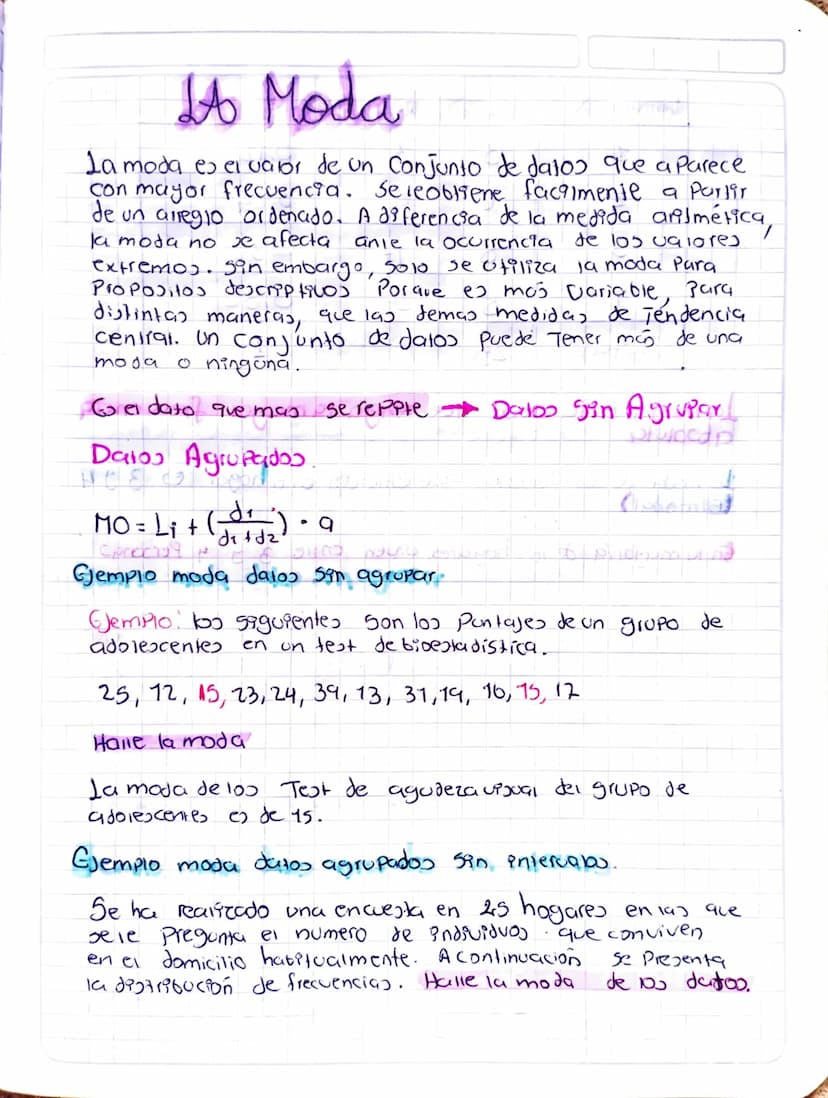 LA Moda
La moda es el valor de un Conjunto de datos que aparece
con mayor frecuencia. Se le obtiene facilmente a Partir
de un arreglo ordenado. A diferencia de la medida aritmética,
la moda no se afecta ante la ocurrencia de los valores
extremos. Sin embargo, Solo se utiliza la moda Para
Propositos descriptivos Porque es más Variable, Para
distintas maneras, que las demas medidas de Tendencia
central. Un Conjunto de datos Puede Tener más de una
moda o ninguna.
Es el dato que mas se repite → Datos Sin Agrupar
Datos Agrupados
MO = Li + (d1 / d1 + d2) · a
Ejemplo moda datos sin agrupar.
Ejemplo: los siguientes son los Puntajes de un grupo de
adolescentes en un test de bioestadística.
25, 12, 15, 23, 24, 39, 13, 31, 19, 16, 15, 17
Halle la moda
La moda de los Test de agudeza visual del grupo de
adolescentes es de 15.
Ejemplo moda datos agrupados sin intervalos.
Se ha realizado una encuesta en 25 hogares en las que
se le Pregunta el numero de individuos que conviven
en el domicilio habitualmente. A continuación se Presenta
la distribución de frecuencias. Halle la moda de los datos.